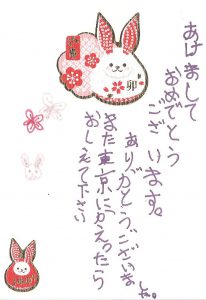 あけまして
おめでとう
ございます。
ありがとうございま
した。
また東京にかえったら
おしえて下さい
卯